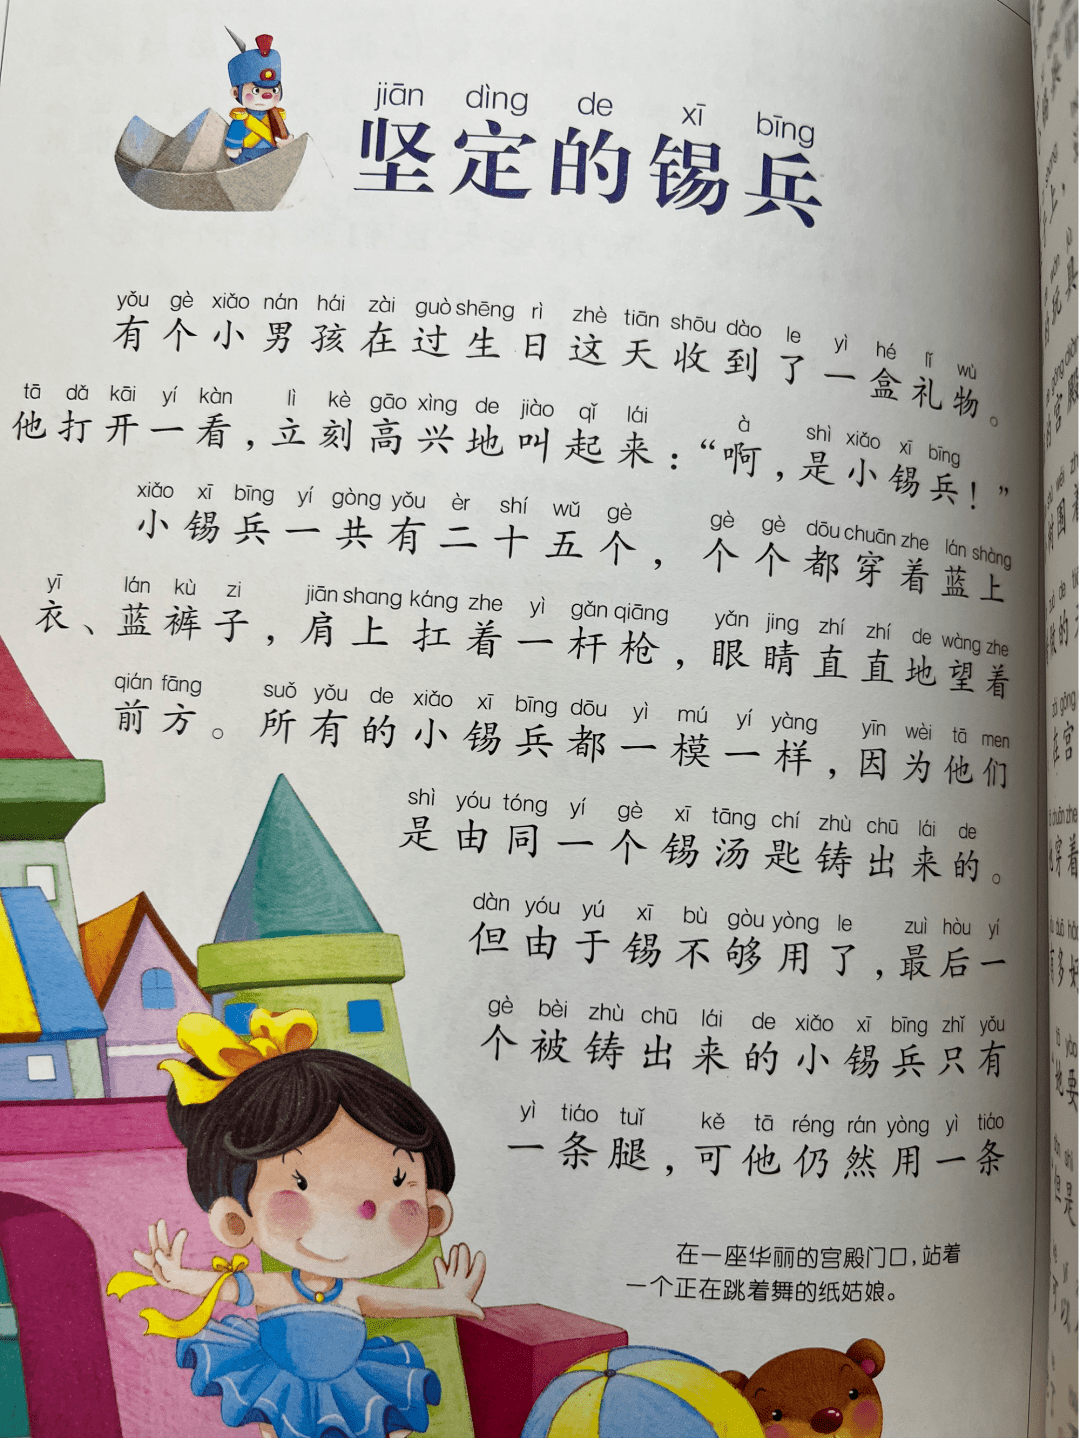 jiān dìng de xī bīng
坚定的锡兵
yǒu gè xiǎo nán hái zài guò shēng rì zhè tiān shōu dào le yì hé lǐ wù
有个小男孩在过生日这天收到了一盒礼物。
tā dǎ kāi yí kàn lì kè gāo xìng de jiào qǐ lái à shì xiǎo xī bīng
他打开一看,立刻高兴地叫起来:“啊,是小锡兵!”
xiǎo xī bīng yí gòng yǒu èr shí wǔ gè gè gè dōu chuān zhe lán shàng
小锡兵一共有二十五个,个个都穿着蓝上
yī lán kù zi jiān shang káng zhe yì gǎn qiāng yǎn jing zhí zhí de wàng zhe
衣、蓝裤子,肩上扛着一杆枪,眼睛直直地望着
qián fāng suǒ yǒu de xiǎo xī bīng dōu yì mú yí yàng yīn wèi tā men
前方。所有的小锡兵都一模一样,因为他们
shì yóu tóng yí gè xī tāng chí zhù chū lái de
是由同一个锡汤匙铸出来的。
dàn yóu yú xī bù gòu yòng le zuì hòu yí
但由于锡不够用了,最后一
gè bèi zhù chū lái de xiǎo xī bīng zhǐ yǒu
个被铸出来的小锡兵只有
yì tiáo tuǐ kě tā réng rán yòng yì tiáo
一条腿,可他仍然用一条
在一座华丽的宫殿门口,站着
一个正在跳着舞的纸姑娘。